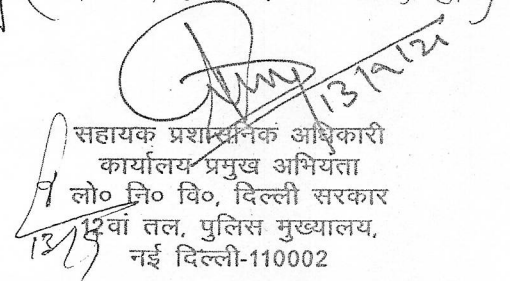 13/9/21
सहायक प्रशासनिक अधिकारी
कार्यालय प्रमुख अभियंता
लो० नि० वि०, दिल्ली सरकार
12वां तल, पुलिस मुख्यालय,
13/9
नई दिल्ली-110002